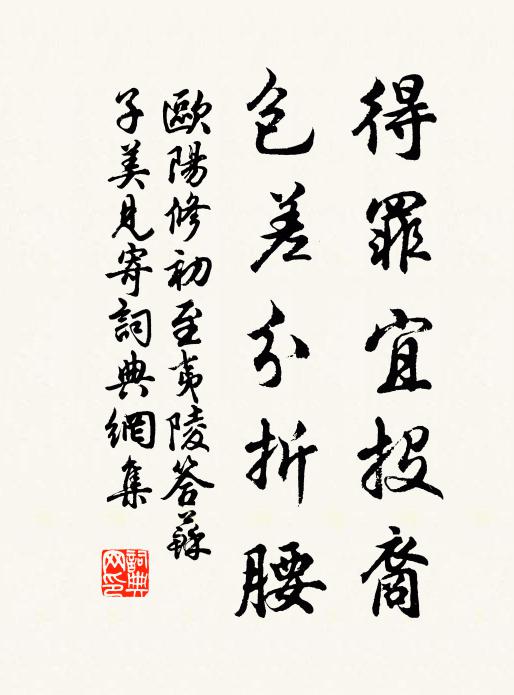 得罪宜投裔
包羞分折腰
歐陽修初至夷陵答蘇
子美見寄詞典網集
詞典
网印